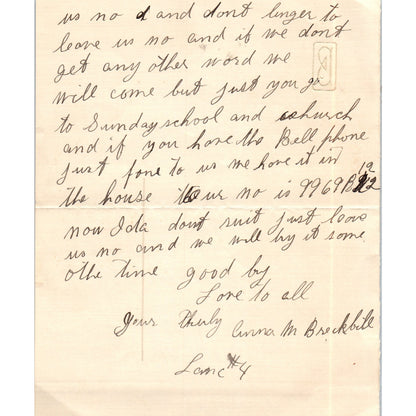 us no d and dont linger to
leave us no and if we dont
get any other word we
will come but just you go
to Sunday school and church
and if you have the Bell phone
just fone to us we have it in
the house our no is 9969 B 12
now Ida dont suit just leave
us no and we will try it some
othe time good by
Love to all
Your Truly Anna M Brackbill
Lanc #4